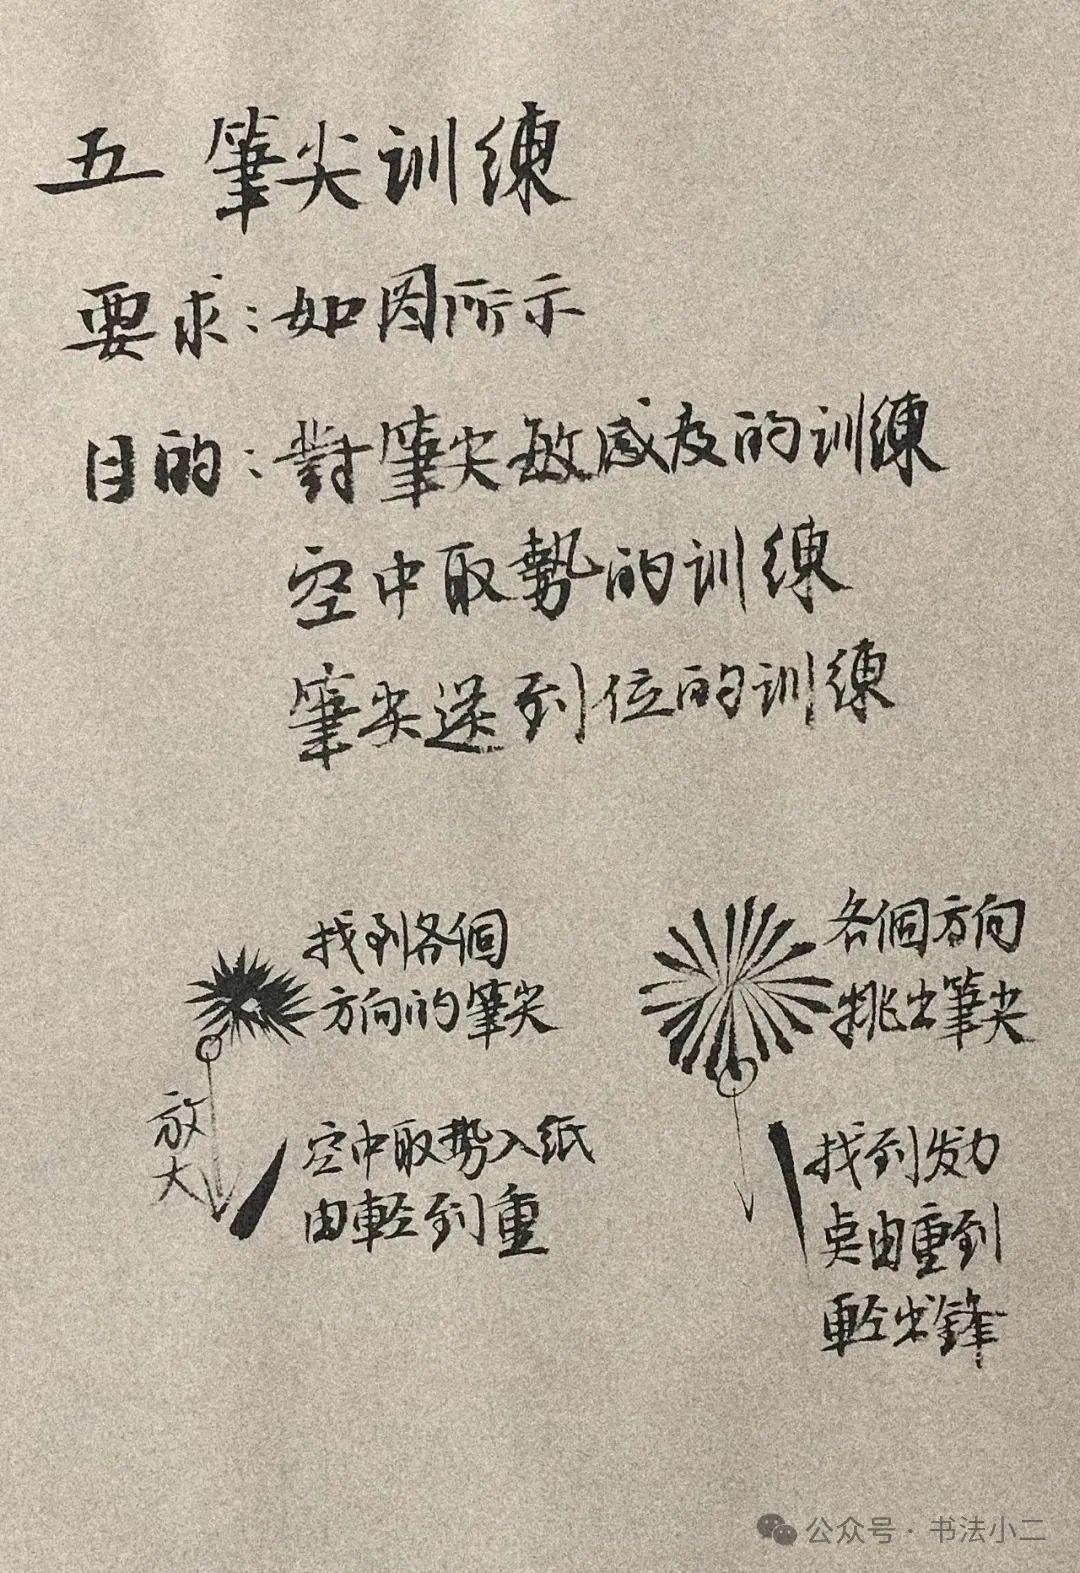 五 筆尖训練
要求:如图所示
目的:對筆尖敏感度的训練
空中取勢的训練
筆尖送到位的训練
找到各個
方向的筆尖
放大
空中取势入纸
由輕到重
各個方向
挑出筆尖
找到发力
点由重到
輕出鋒
公众号·书法小二